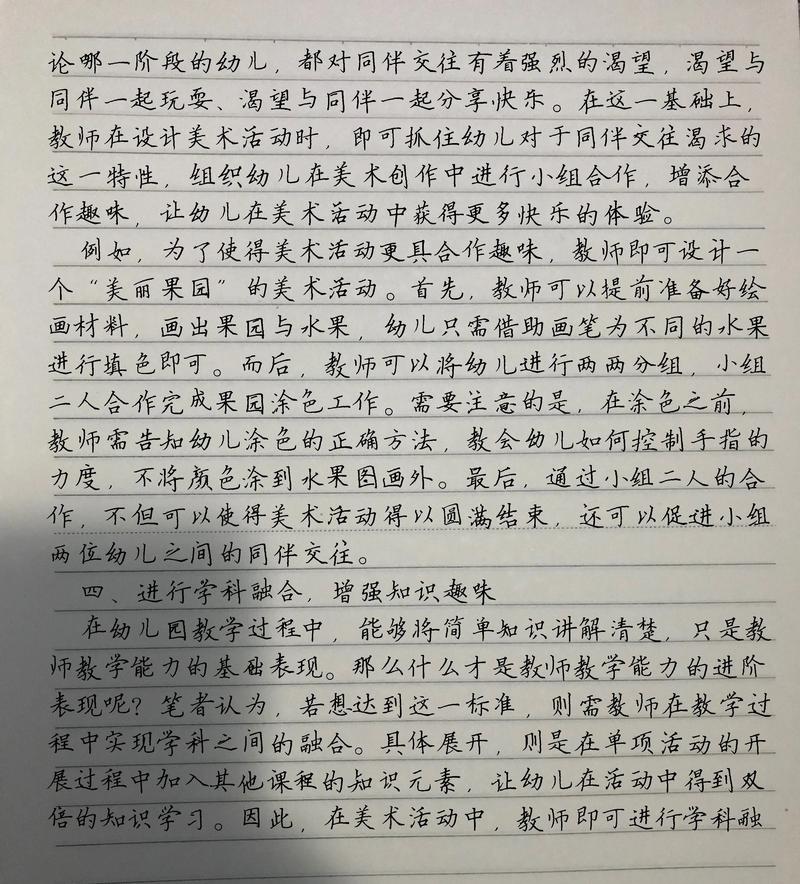 论哪一阶段的幼儿，都对同伴交往有着强烈的渴望，渴望与
同伴一起玩耍、渴望与同伴一起分享快乐。在这一基础上，
教师在设计美术活动时，即可抓住幼儿对于同伴交往渴求的
这一特性，组织幼儿在美术创作中进行小组合作，增添合
作趣味，让幼儿在美术活动中获得更多快乐的体验。
例如，为了使得美术活动更具合作趣味，教师即可设计一
个“美丽果园”的美术活动。首先，教师可以提前准备好绘
画材料，画出果园与水果，幼儿只需借助画笔为不同的水果
进行填色即可。而后，教师可以将幼儿进行两两分组，小组
二人合作完成果园涂色工作。需要注意的是，在涂色之前，
教师需告知幼儿涂色的正确方法，教会幼儿如何控制手指的
力度，不将颜色涂到水果图画外。最后，通过小组二人的合
作，不但可以使得美术活动得以圆满结束，还可以促进小组
两位幼儿之间的同伴交往。
四、进行学科融合，增强知识趣味
在幼儿园教学过程中，能够将简单知识讲解清楚，只是教
师教学能力的基础表现。那么什么才是教师教学能力的进阶
表现呢？笔者认为，若想达到这一标准，则需教师在教学过
程中实现学科之间的融合。具体展开，则是在单项活动的开
展过程中加入其他课程的知识元素，让幼儿在活动中得到双
倍的知识学习。因此，在美术活动中，教师即可进行学科融